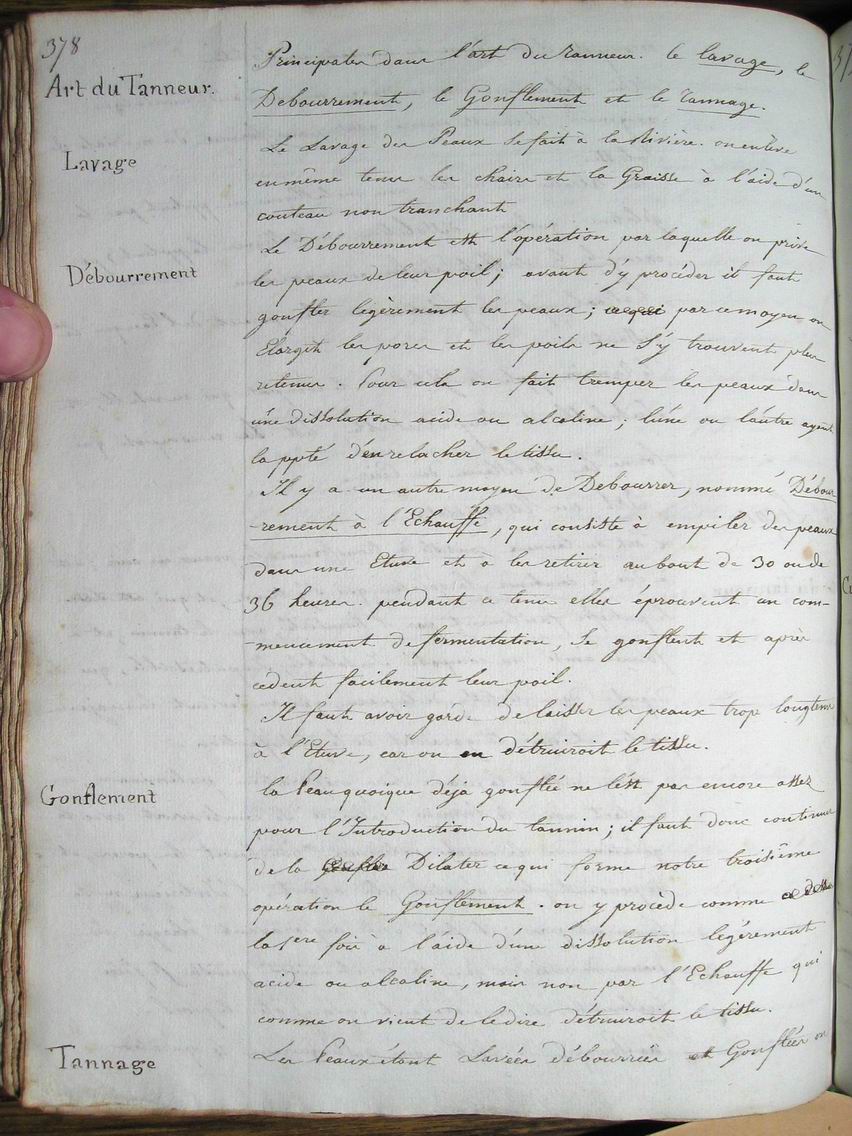 378
Art du Tanneur.
Principales dans l'art du Tanneur. le lavage, le
Debourrement, le Gonflement et le Tannage.
Lavage
Le Lavage des Peaux se fait à la Rivière. on enlève
en même tems les chairs et la Graisse à l'aide d'un
couteau non tranchant
Débourrement
Le Débourrement est l'opération par laquelle on prive
les peaux de leur poil; avant d'y procéder il faut
gonfler légèrement les peaux; par ce moyen on
Elargit les pores et les poils ne s'y trouvent plus
retenus. Pour cela on fait tremper les peaux dans
une dissolution acide ou alcaline; l'une ou l'autre ayant
la ppté d'en relacher le tissu.
Il y a un autre moyen de Debourrer, nommé Débour
-rement à l'Echauffe, qui consiste à empiler des peaux
dans une Etuve et à les retirer au bout de 30 ou de
36 heures. pendant ce tems elles éprouvent un com-
-mencement de fermentation, se gonflent et après
cèdent facilement leur poil.
Il faut avoir garde de laisser les peaux trop longtems
à l'Etuve, car on en détruiroit le tissu.
Gonflement
la Peau quoique déjà gonflée ne l'est pas encore assez
pour l'Introduction du tannin; il faut donc continuer
de la Dilater ce qui forme notre troisième
opération le Gonflement. on y procède comme
la 1ere fois à l'aide d'une dissolution légèrement
acide ou alcaline, mais non par l'Echauffe qui
comme on vient de le dire détruiroit le tissu.
Tannage
Les Peaux étant Lavées débourrées et Gonflées on